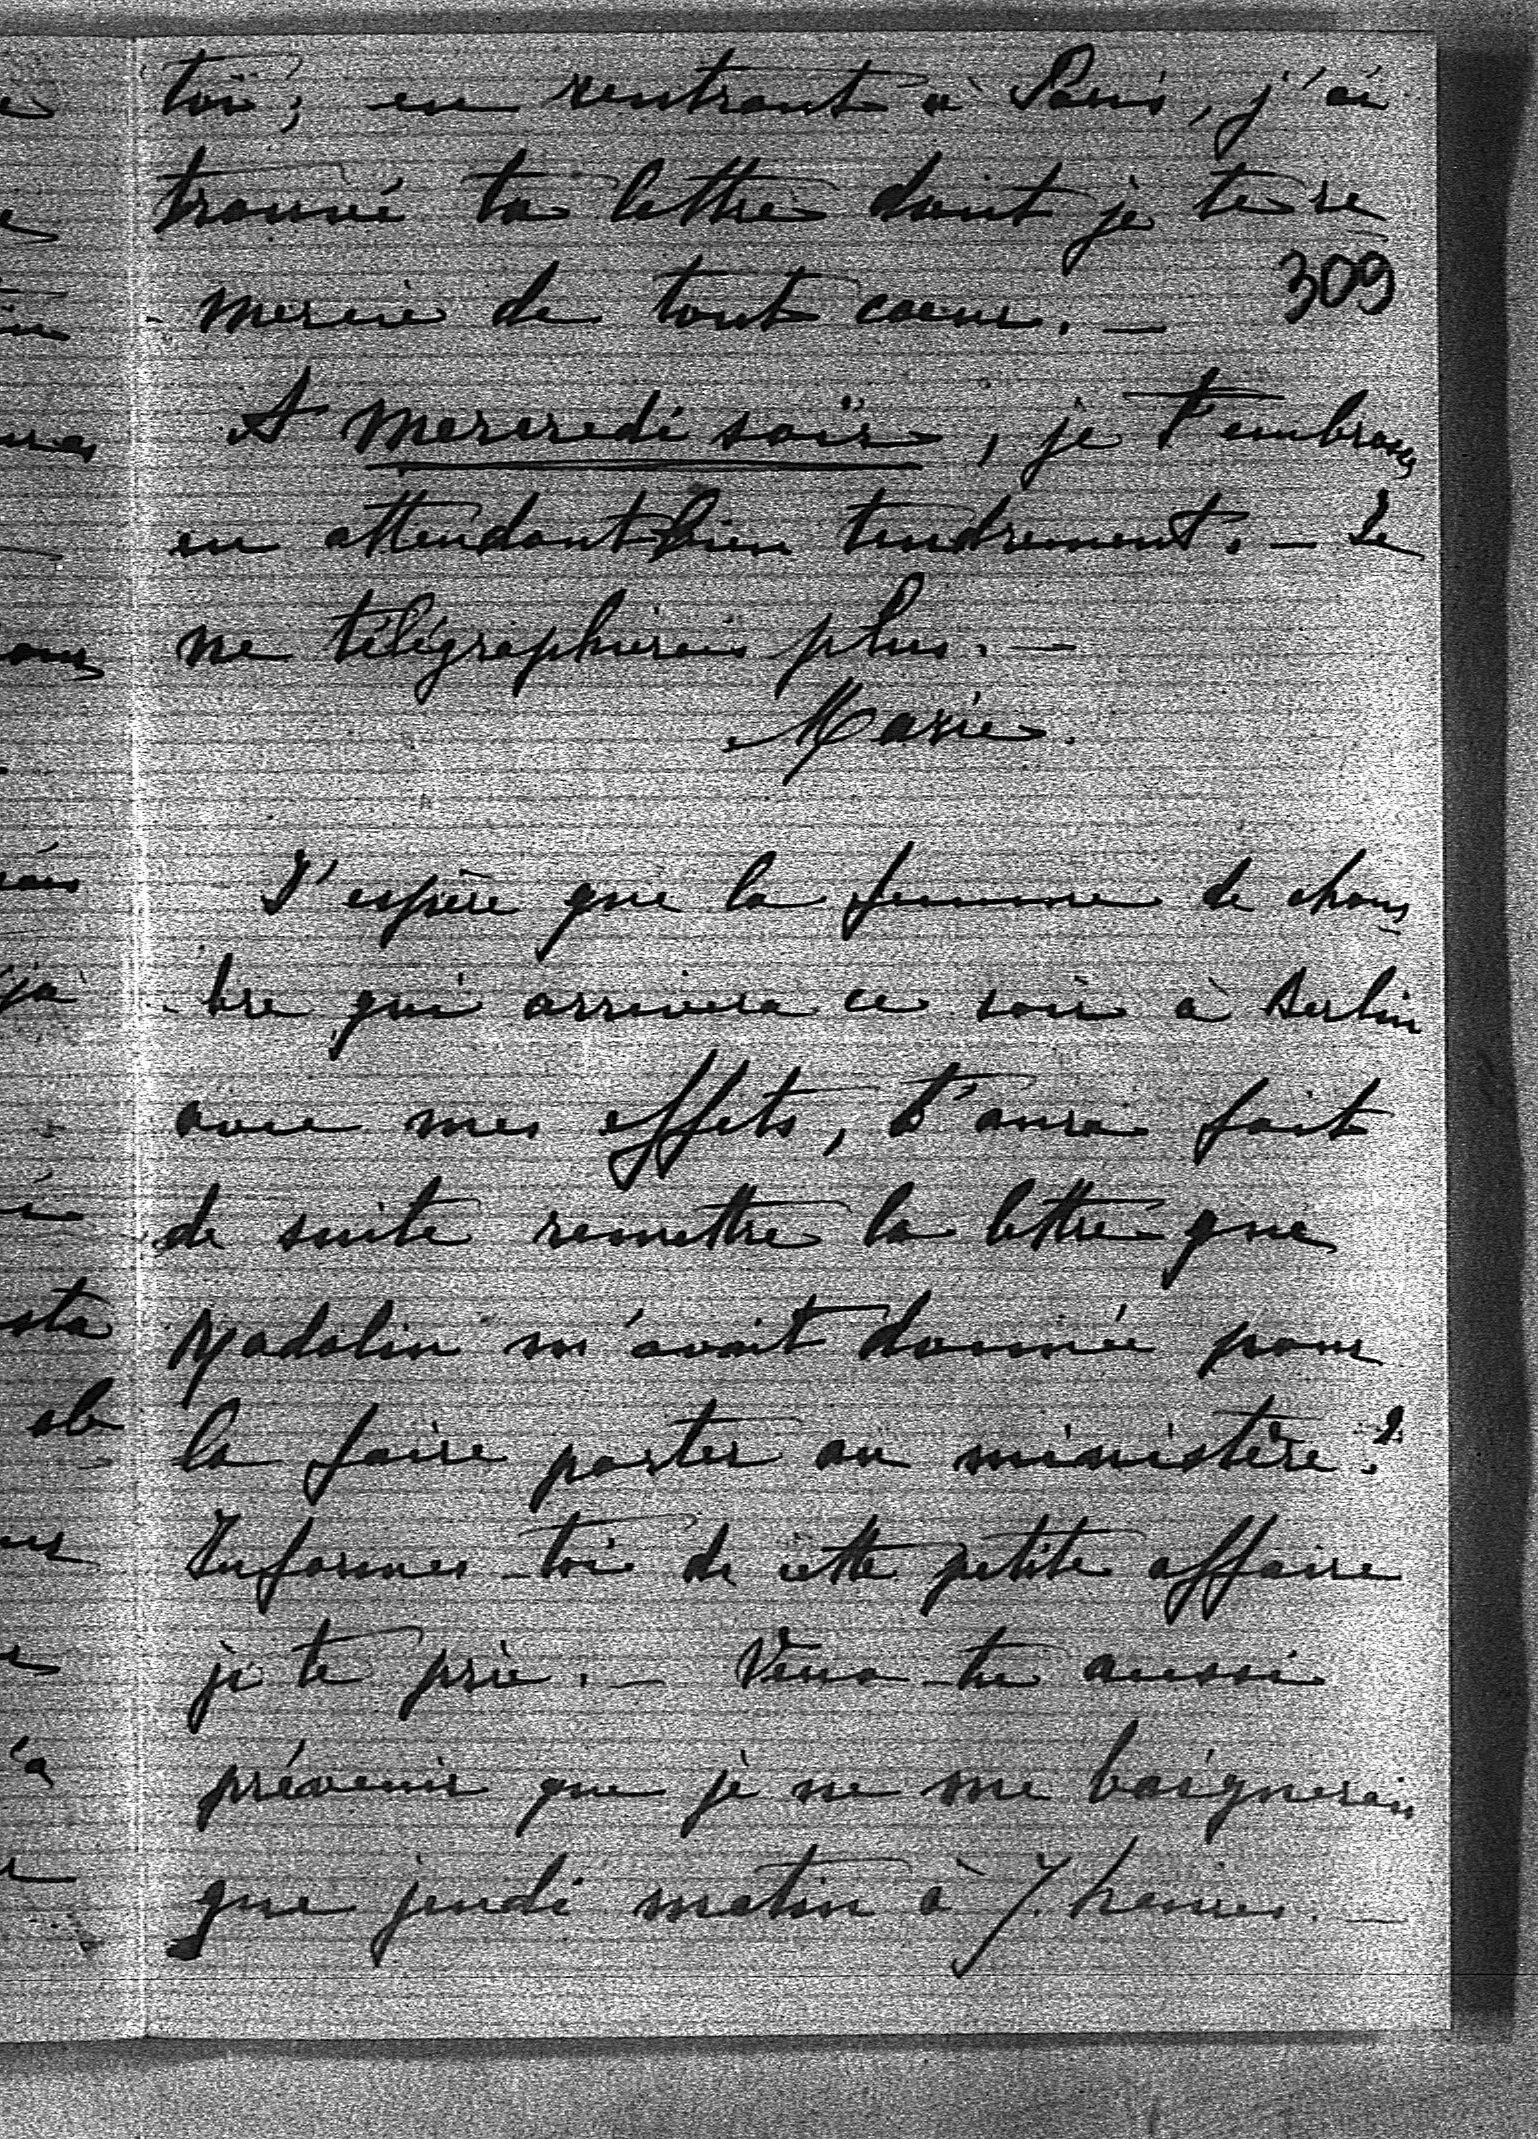 toi; en rentrant à Paris, j'ai
trouvé ta lettre dont je te re
309
- mercie de tout coeur. —
A mercredi soir, je t'embrasse
en attendant bien tendrement. — Je
ne télégraphierai plus. —
Marie.
J'espère que la femme de cham
- bre qui arrivera ce soir à Berlin
avec mes effets, t'aura fait
de suite remettre la lettre que
Madolin m'avait donnée pour
la faire porter au ministère?
Informes-toi de cette petite affaire
je te prie. — Veux-tu aussi
prévenir que je ne me baignerai
que jeudi matin à 7. heures. —